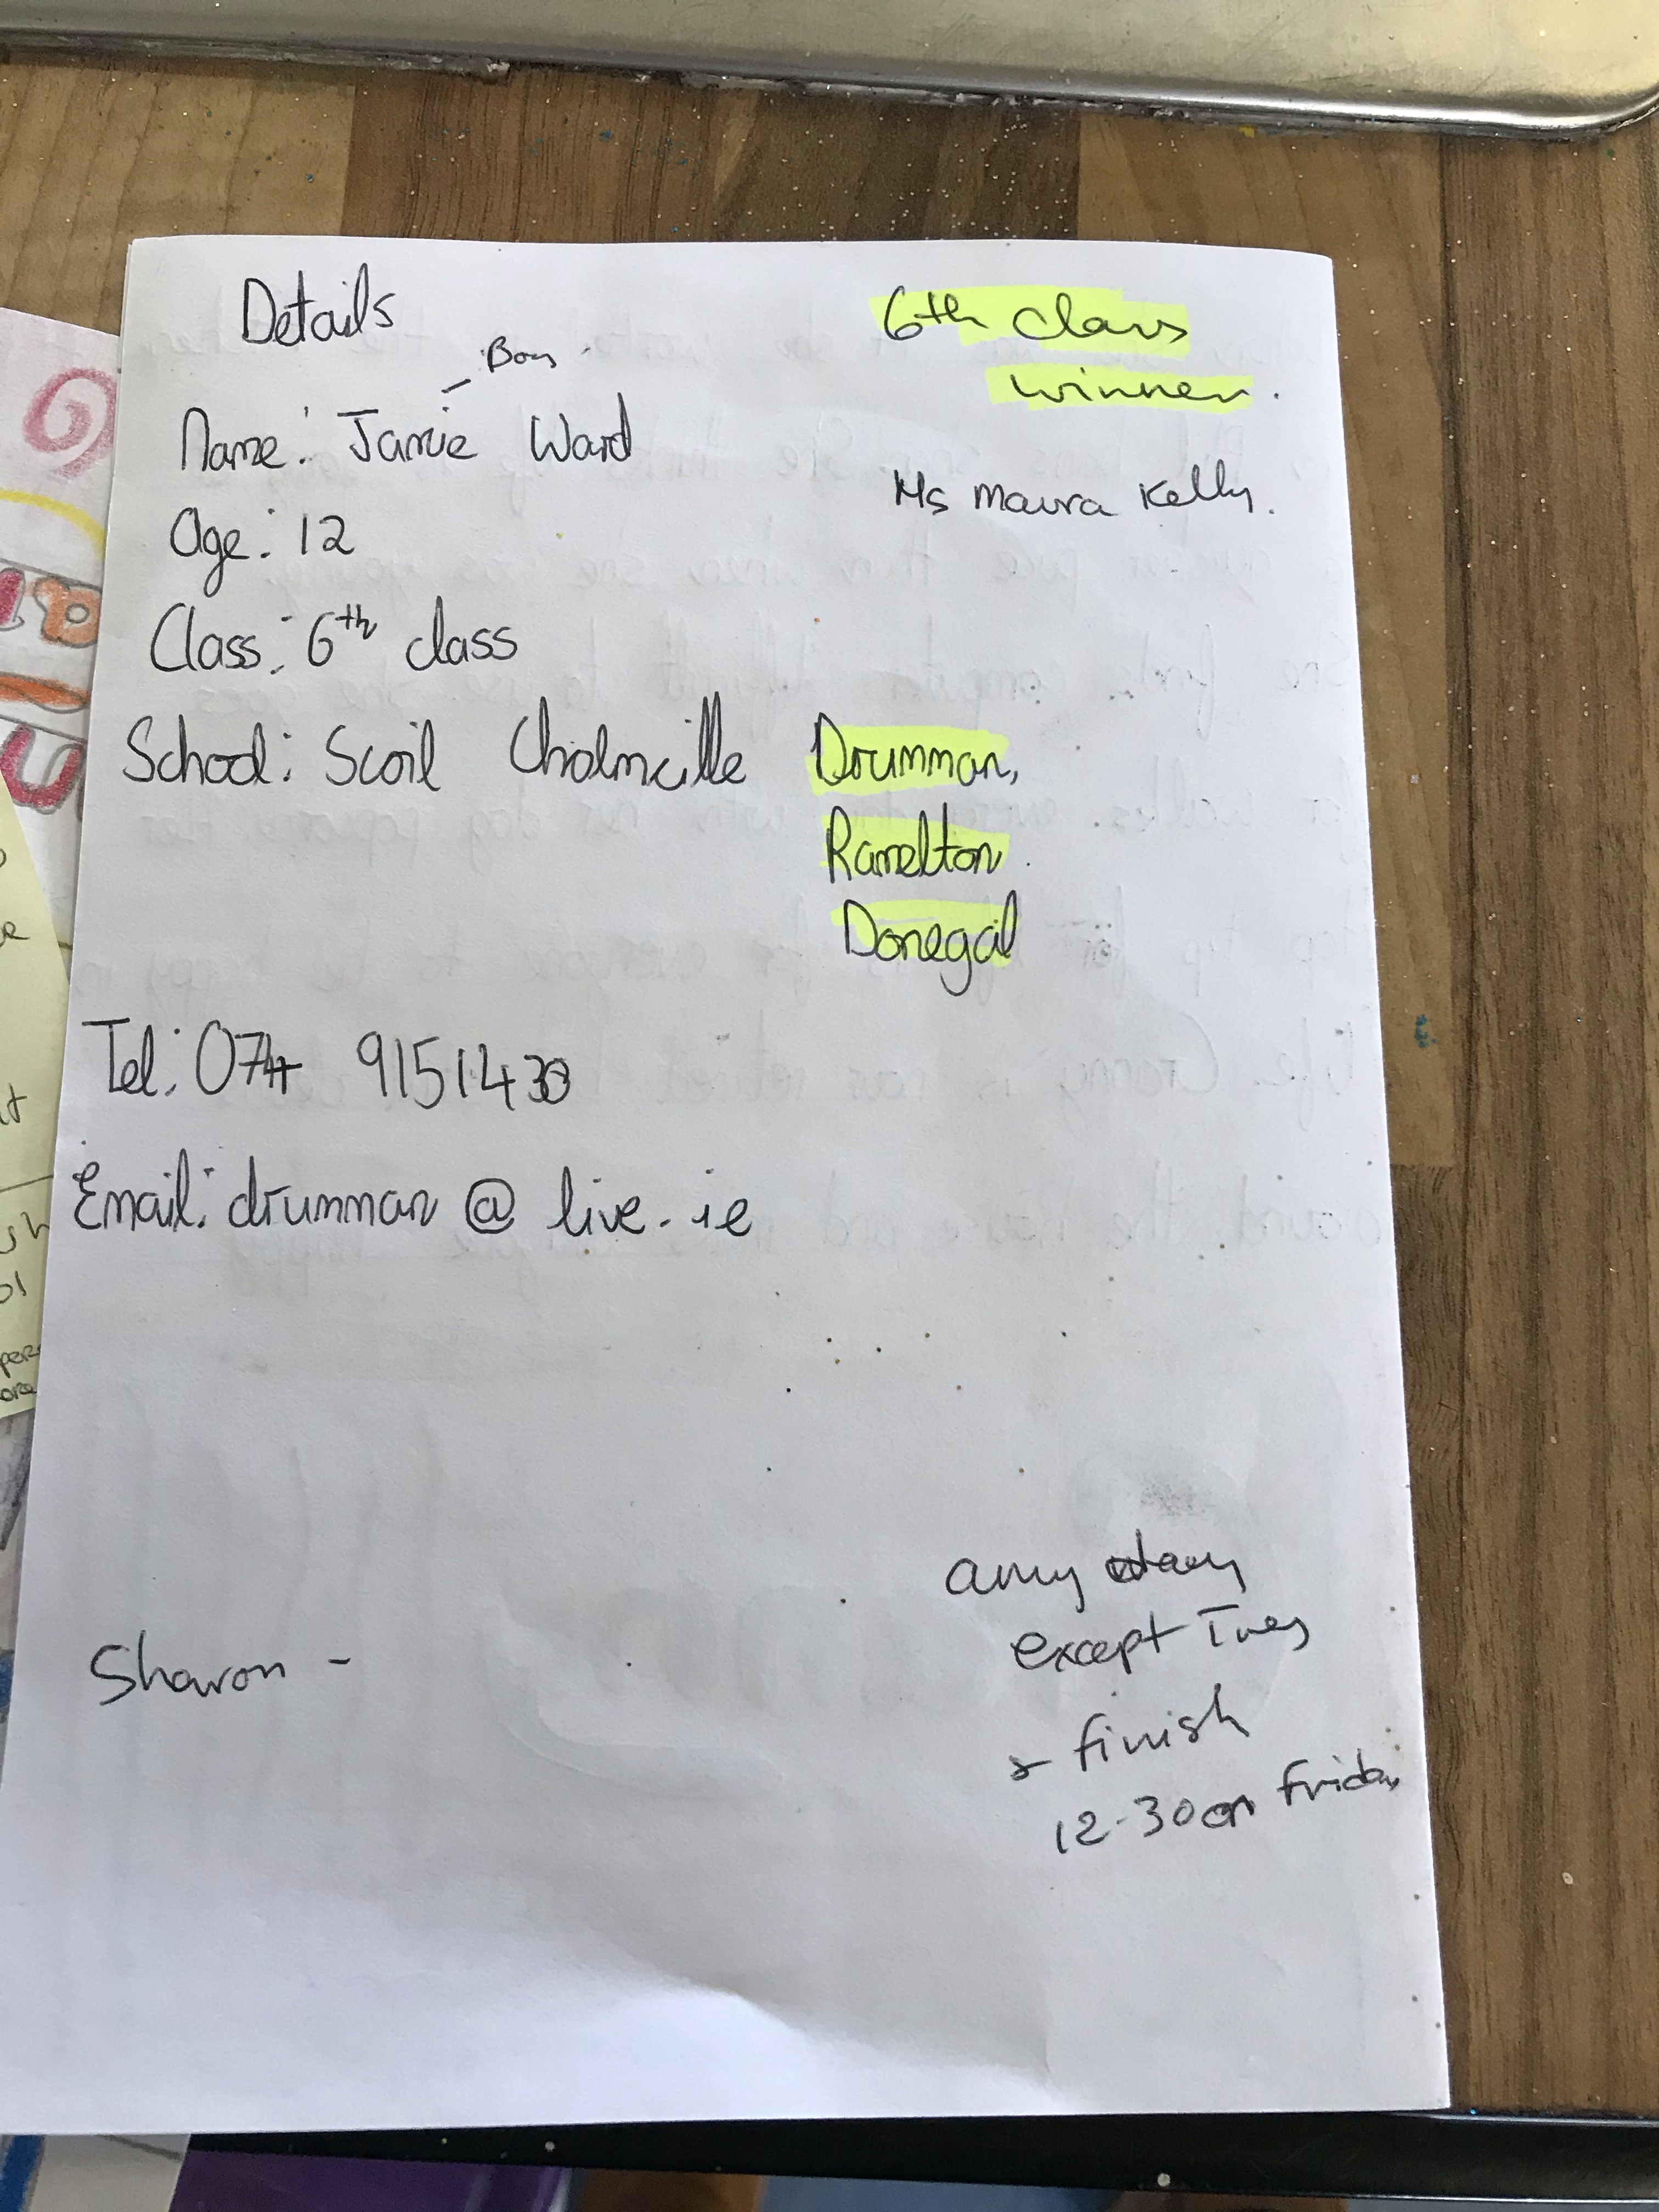 Details
6th class
winner.
- Boy
Name: Jamie Ward
Ms Maura Kelly.
Age: 12
Class: 6th class
School: Scoil Cholmcille Drumman,
Ramelton
Donegal
Tel: 074 9151430
Email: drumman @ live.ie
any day
except Tues
Sharon -
finish
12-30 on Friday